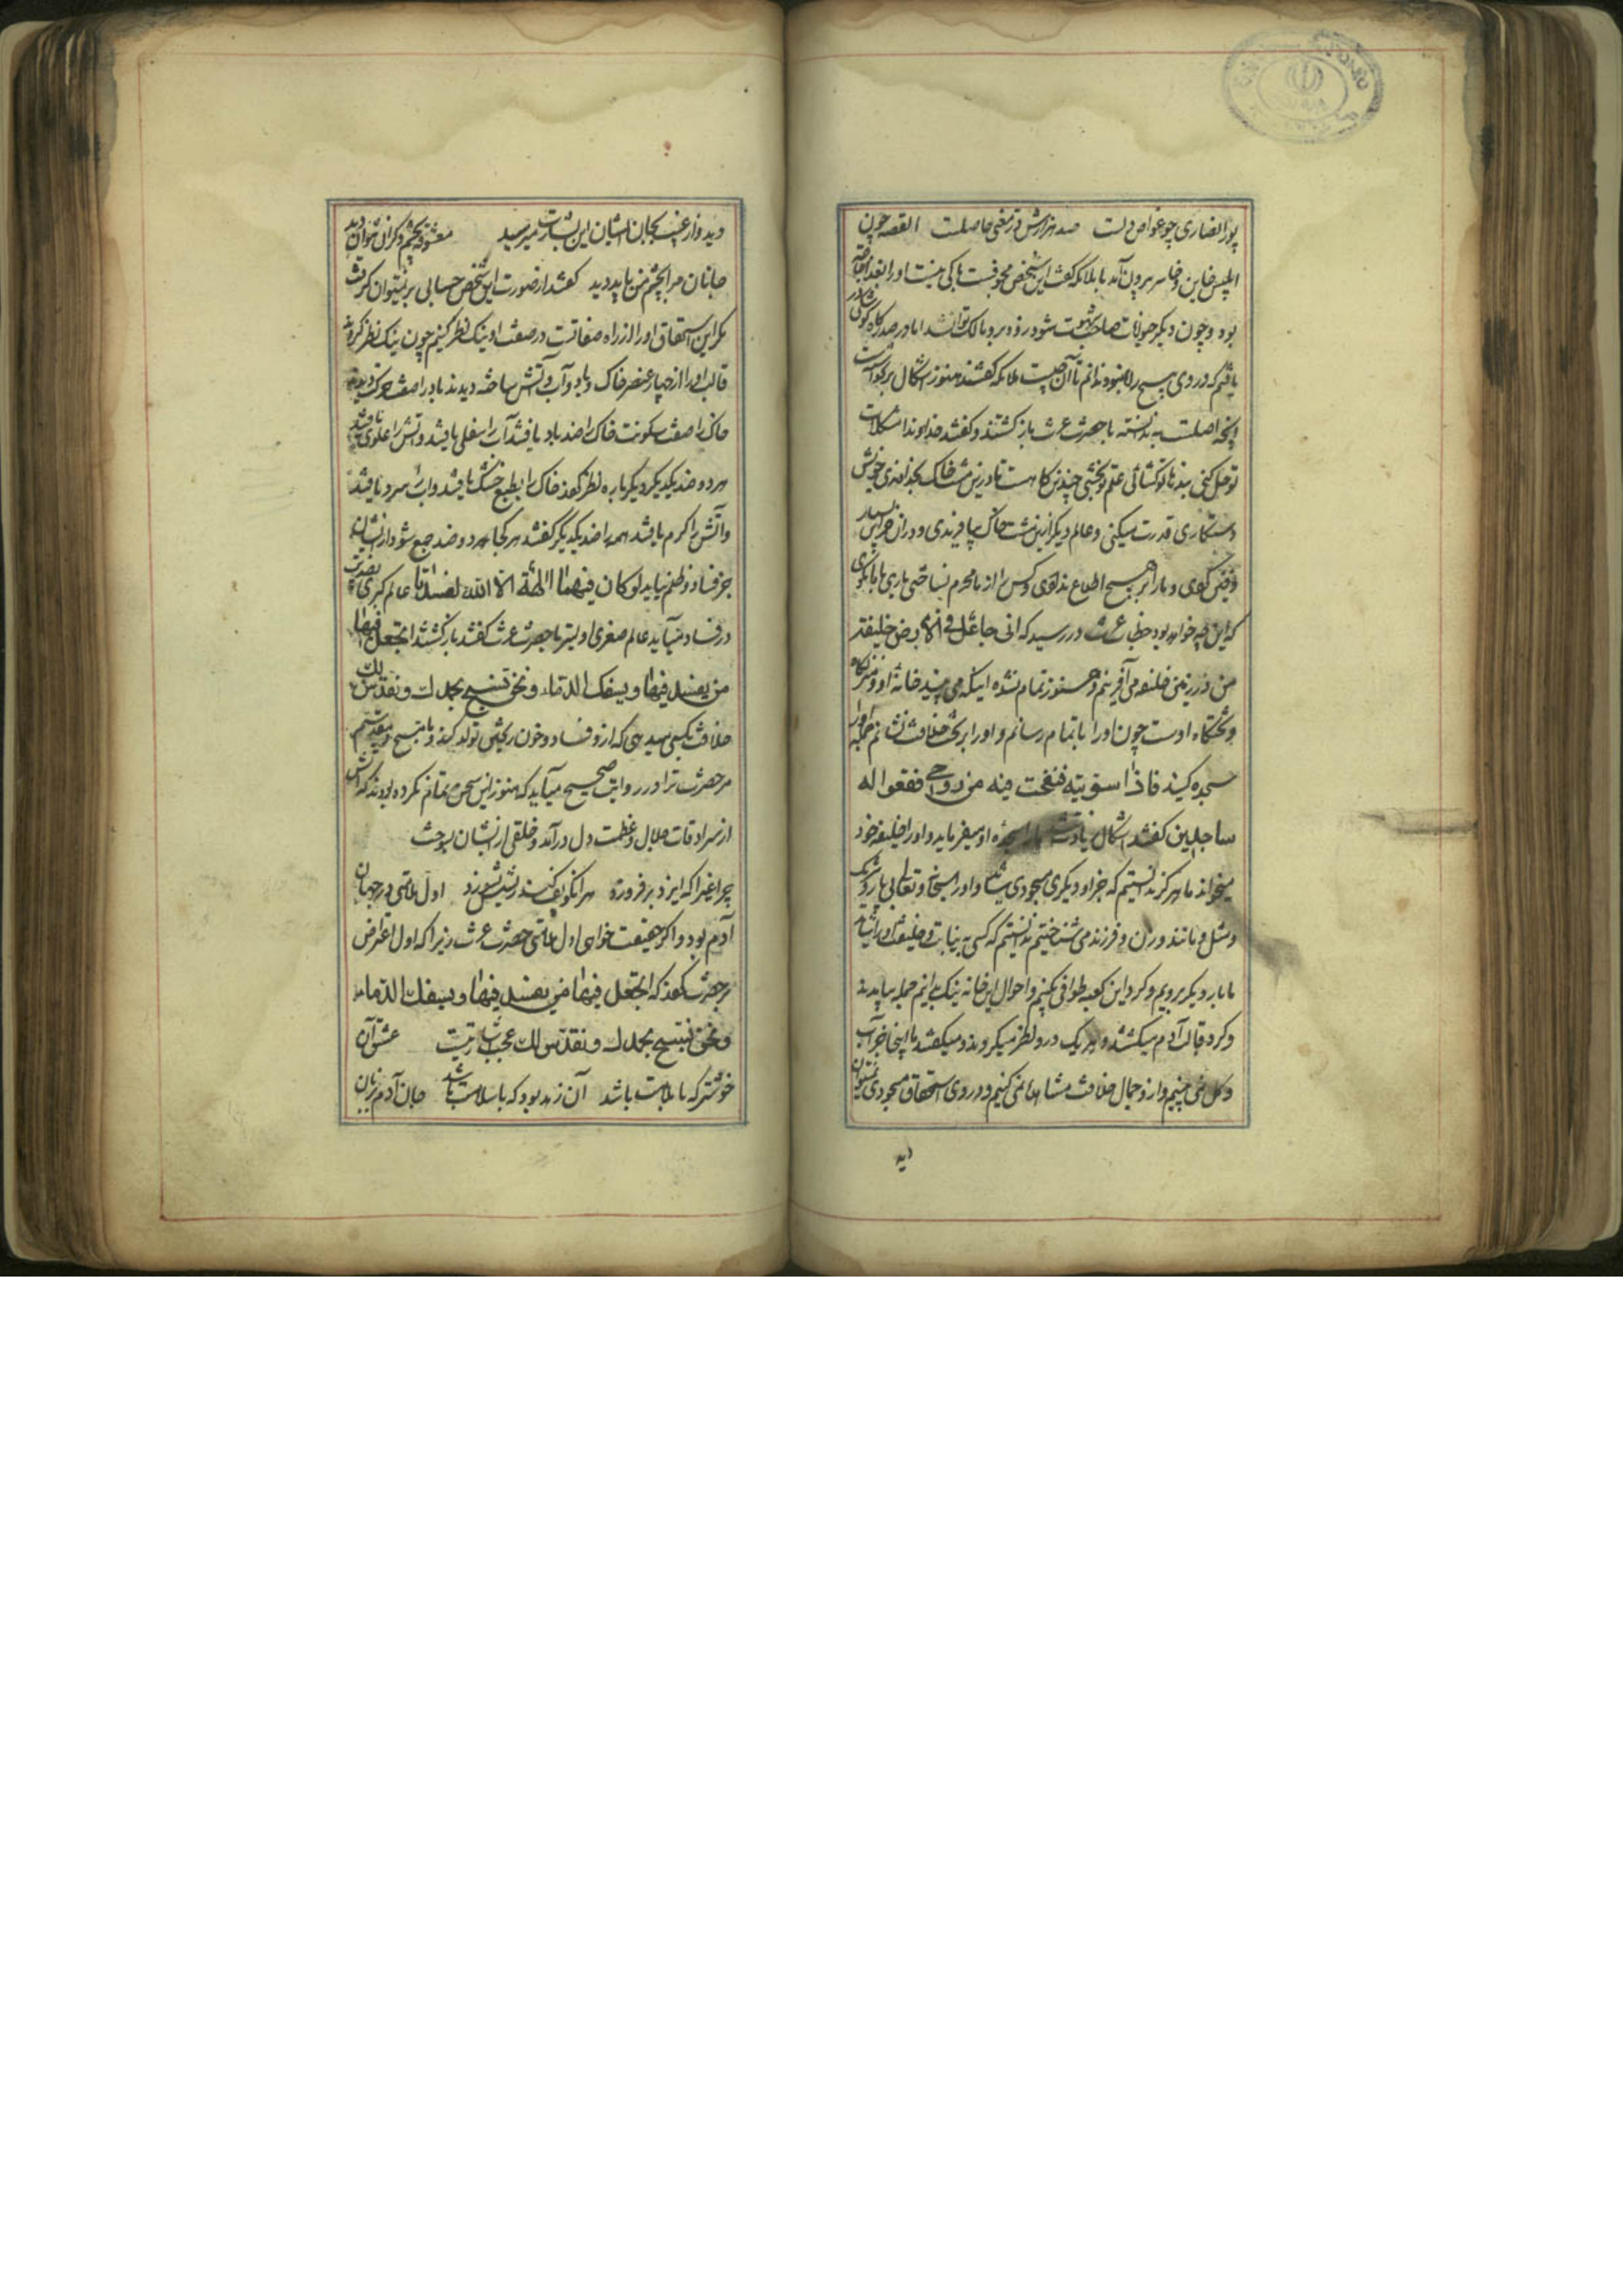 پور انصاری چو غواص دلست صد هزارش در معنی حاصلست القصه چون
ابلیس خاین و خاسر بیرون آمد با ملائکه گفت این شخص مجوفیست باکی نیست او را بغذا حاجت
بود و چون دیگر حیوانات صاحب شهوت شود زود برو مالک توان شد اما در صدرگاه کوشکی
یافتم که در وی هیچ راه نبود ندانم تا آن چیست ملائکه گفتند هنوز اشکال برنخواست
آنچه اصلست ندانسته با حضرت عزت بازگشتند و گفتند خداوندا مشکلات
تو حل کنی بندها تو گشائی علم تو بخشی چندین گاهست تا درین مشت خاک بخداوندی خویش
دستکاری قدرت میکنی و عالم دیگر ازین مشت خاک بیافریدی و در آن خزاین بسیار
دفین کردی و ما را بر هیچ اطلاع ندادی و کس را از ما محرم نساختی باری با ما بگوی
که این چه خواهد بود خطاب عزت در رسید که انی جاعل فی الارض خلیفة
من در زمین خلیفه می‌آفرینم و هنوز تمام نشده اینکه می‌بینید خانه او و منزلگاه
و تختگاه اوست چون او را باتمام رسانم و او را بر تخت خلافت نشانم جمله او را
سجده کنید فاذا سویته فنفخت فیه من روحی فقعوا له
ساجدین گفتند اشکال زیادت شد ما را سجده او میفرماید و او را خلیفه خود
میخواند ما هرگز ندانستیم که جز او دیگری مسجودی شاید و او را سبحانه و تعالی بی یار و شریک
و مثل و مانند و زن و فرزند می‌شناختیم ندانستیم که کسی به نیابت و خلیفتی او را شاید
ما بار دیگر برویم و گرد این کعبه طوافی بکنیم و احوال این خانه نیک بدانیم جمله بیامدند
و گرد قالب آدم میگشتند و هر یک در وی نظر میکردند و میگفتند ما اینجا جز آب
و گل نمی‌بینیم و از و جمال خلافت مشاهده نمی‌کنیم و در وی استحقاق مسجودی نمیتوان
دید
دید و از غیب بجان ایشان این بشارت میرسید معشوقه بچشم دگران نتوان دید
جانان مرا بچشم من باید دید گفتند از صورت این شخص حسابی بر نمیتوان گرفت
مگر این استحقاق او را از راه صفاتست در صفت او نیک نظر کنیم چون نیک نظر کردند
قالب او را از چهار عنصر خاک و باد و آب و آتش ساخته دیدند باد را صفت حرکت دیدند
خاک را صفت سکونت خاک را ضد باد یافتند آب را سفلی یافتند و آتش را علوی یافتند
هر دو ضد یکدیگر دیگر باره نظر کردند خاک را بطبع خشک یافتند و آب را سرد یافتند
و آتش را گرم یافتند همه را ضد یکدیگر گفتند هر کجا هر دو ضد جمع شود از ایشان
جز فساد و ظلم نیاید لو کان فیهما آلهة الا الله لفسدتا عالم کبری بضدیت
در فساد می‌آید عالم صغری اولیتر با حضرت عزت گفتند بازگشتند اتجعل فیها
من یفسد فیها و یسفک الدماء و نحن نسبح بحمدک و نقدس لک
خلافت بکسی میدهی که از و فساد و خون ریختن تولد کند و ما تسبیح و تقدیسیم
مر حضرت ترا در روایت صحیح می‌آید که هنوز این سخن تمام نکرده بودند که آتش
از سرادقات جلال و عظمت دل درآمد و خلقی از ایشان بسوخت
چراغی را که ایزد بر فروزد هر آنکو پف کند ریشش بسوزد اول ملامتی در جهان
آدم بود و اگر حقیقت خواهی اول ملامتی حضرت عزت زیرا که اول اعتراض
بر حضرت کردند که اتجعل فیها من یفسد فیها و یسفک الدماء
و نحن نسبح بحمدک و نقدس لک عجب اشارتیست عشق آن
خوشتر که با ملامت باشد آن زهد بود که با سلامت باشد جان آدم بزبان